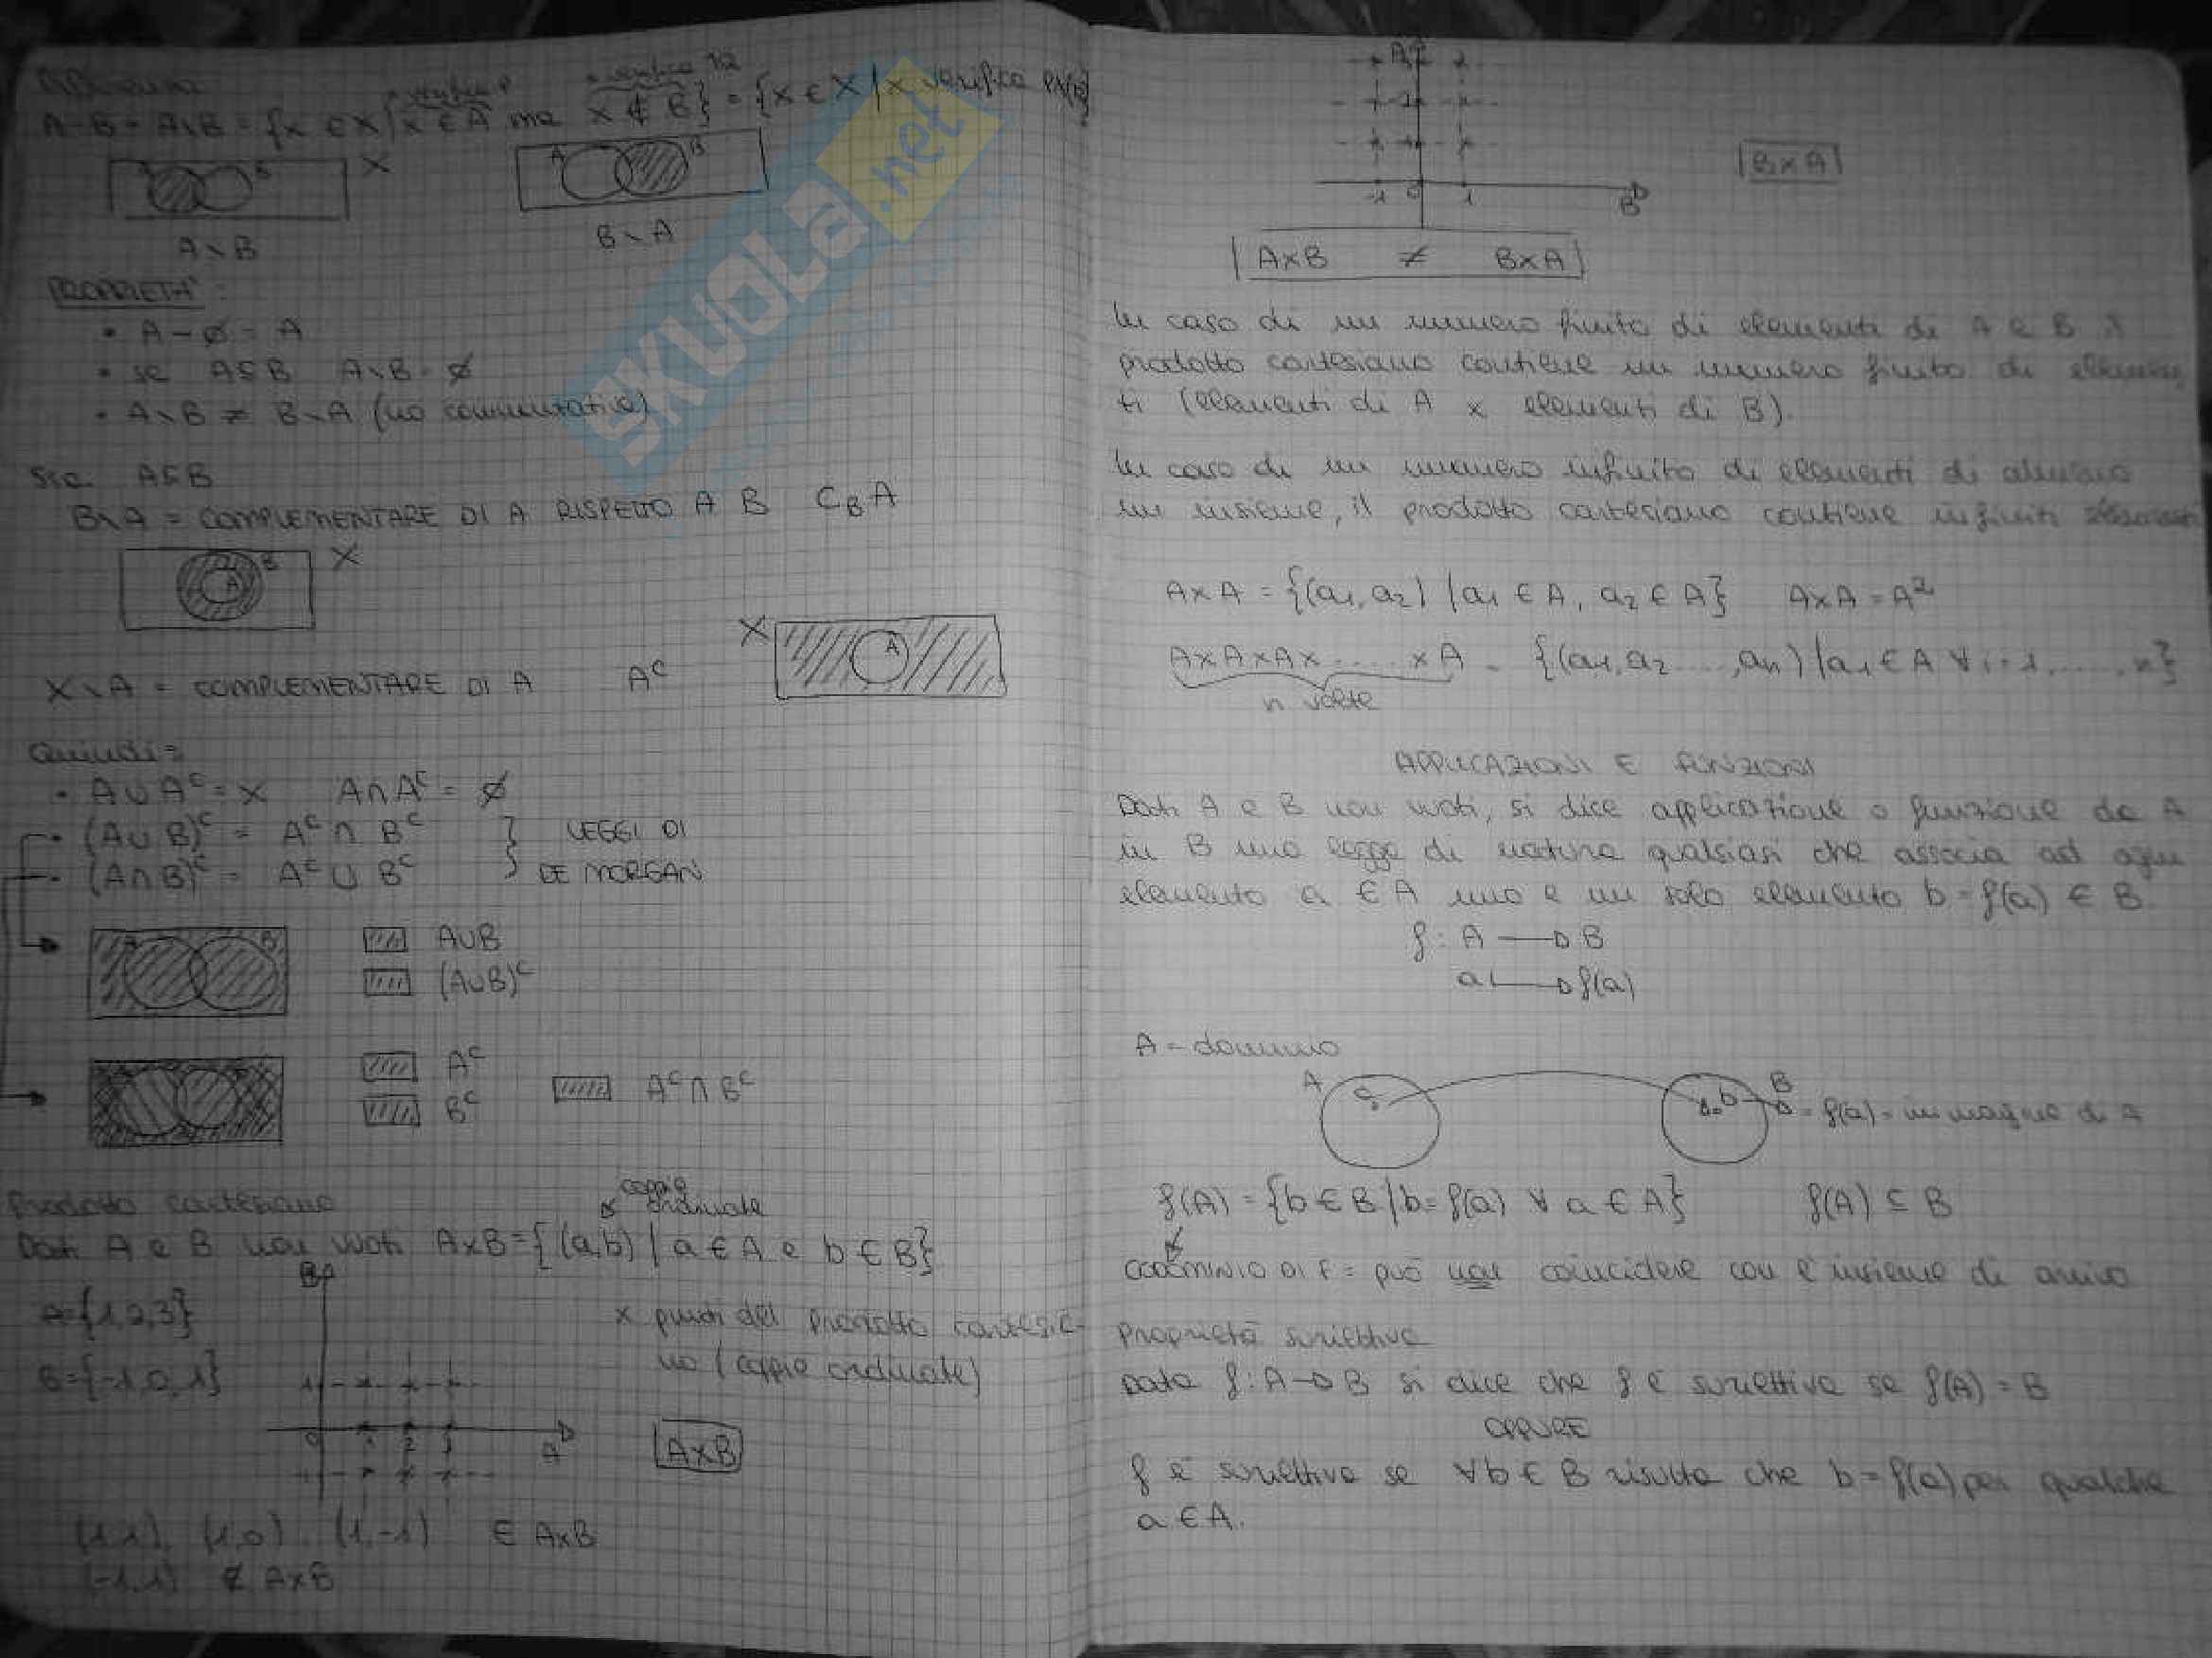 Differenza
A-B = A\B = {x ∈ X | x ∈ A ma x ∉ B} = {x ∈ X | x verifica
A B X
A B
A\B
B\A
PROPRIETA':
• A-∅ = A
• se A⊆B A\B = ∅
• A\B ≠ B\A (no commutativa)
Sia A⊆B
B\A = COMPLEMENTARE DI A RISPETTO A B C_B A
A B X
X\A = COMPLEMENTARE DI A A^c
X A
Quindi:
• A∪A^c = X A∩A^c = ∅
• (A∪B)^c = A^c ∩ B^c } LEGGI DI
• (A∩B)^c = A^c ∪ B^c } DE MORGAN
A∪B
(A∪B)^c
A^c
B^c
A^c ∩ B^c
Prodotto cartesiano
coppie
ordinate
Dati A e B non vuoti A×B = {(a,b) | a ∈ A e b ∈ B}
A={1,2,3}
B={-1,0,1}
x punti del prodotto cartesia-
no (coppie ordinate)
B
0 1 2 3 A
A×B
(1,1), (1,0), (1,-1) ∈ A×B
(-1,1) ∉ A×B
A
-1 0 1 B
B×A
A×B ≠ B×A
In caso di un numero finito di elementi di A e B il
prodotto cartesiano contiene un numero finito di elemen
ti (elementi di A × elementi di B).
In caso di un numero infinito di elementi di almeno
un insieme, il prodotto cartesiano contiene infiniti elementi
A×A = {(a1, a2) | a1 ∈ A, a2 ∈ A} A×A = A²
A×A×A×....×A = {(a1, a2 ..., an) | a1 ∈ A ∀ i=1, ...., n}
n volte
APPLICAZIONI E FUNZIONI
Dati A e B non vuoti, si dice applicazione o funzione da A
in B una legge di natura qualsiasi che associa ad ogni
elemento a ∈ A uno e un solo elemento b = f(a) ∈ B.
f: A → B
a ↦ f(a)
A = dominio
A B
b = f(a) = immagine di A
f(A) = {b ∈ B | b = f(a) ∀ a ∈ A} f(A) ⊆ B
CODOMINIO DI F = può non coincidere con l'insieme di arrivo
Proprietà suriettiva
Data f: A → B si dice che f è suriettiva se f(A) = B
OPPURE
f è suriettiva se ∀b ∈ B risulta che b = f(a) per qualche
a ∈ A.
SKUOLA.net